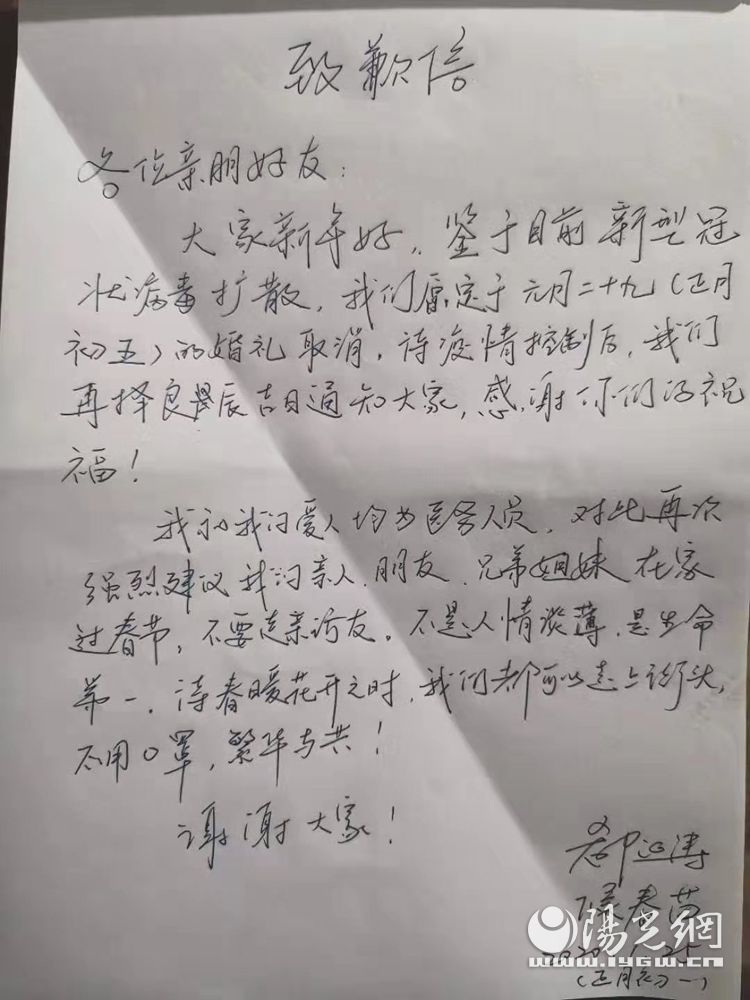 致歉信
各位亲朋好友：
大家新年好，鉴于目前新型冠
状病毒扩散，我们原定于元月二十九（正月
初五）的婚礼取消，待疫情控制后，我们
再择良辰吉日通知大家，感谢你们的祝
福！
我和我的爱人均为医务人员，对此再次
强烈建议我的亲人、朋友、兄弟姐妹在家
过春节，不要走亲访友。不是人情淡薄，是生命
第一，待春暖花开之时，我们都可以走上街头，
不用口罩，繁华与共！
谢谢大家！
春苗
2020.1.25
（正月初一）
陽光網
www.iygw.cn